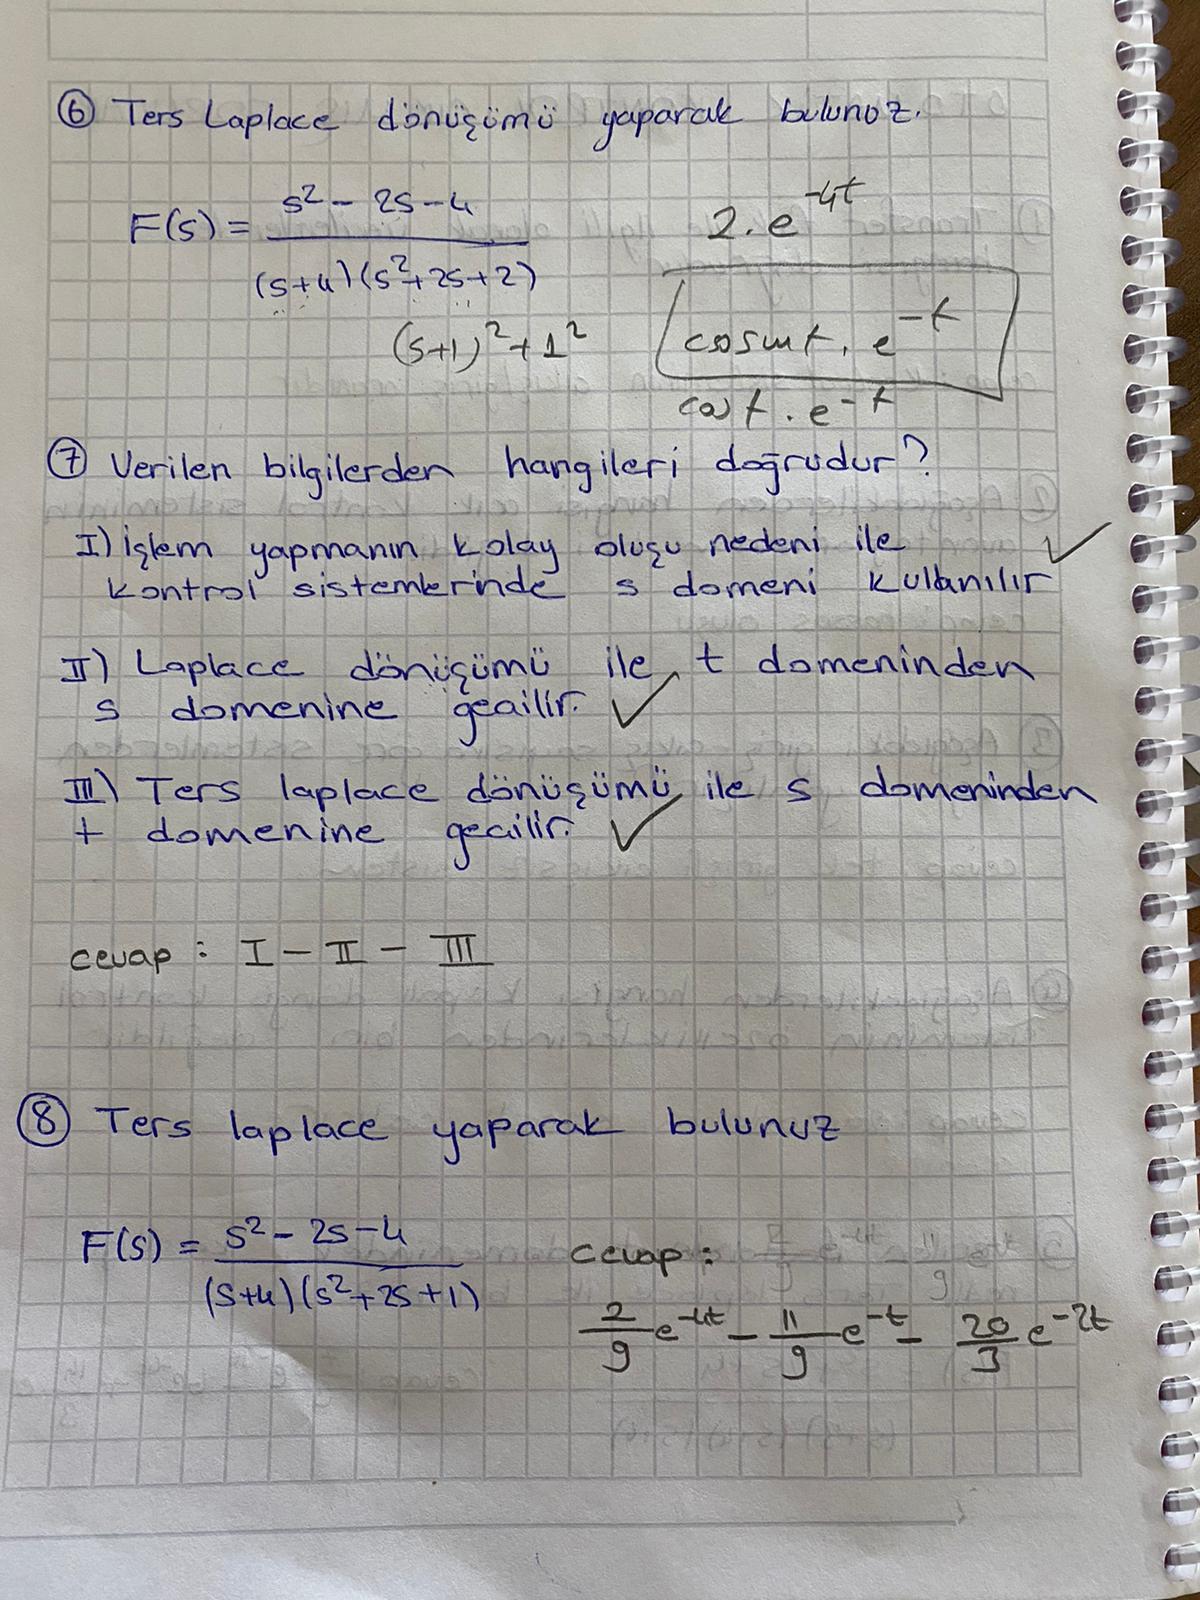 ⑥ Ters Laplace dönüşümü yaparak bulunoz.
F(s) = (s² - 2s - 4) / ((s+4)(s²+2s+2))
(s+1)² + 1²
2.e^-4t
coswt. e^-t
cost. e^-t
⑦ Verilen bilgilerden hangileri doğrudur?
I) İşlem yapmanın kolay oluşu nedeni ile ✓
kontrol sistemlerinde s domeni kullanılır
II) Laplace dönüşümü ile t domeninden
s domenine geailir. ✓
III) Ters laplace dönüşümü ile s domeninden
t domenine geailir. ✓
cevap : I - II - III
⑧ Ters laplace yaparak bulunuz
F(s) = (s² - 2s - 4) / ((s+4)(s²+2s+1))
cevap :
2/9 e^-4t - 11/9 e^-t - 20/3 e^-2t